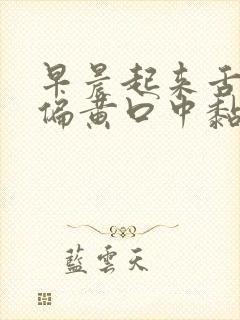 早晨起来舌
偏黄口中黏
藍雲天